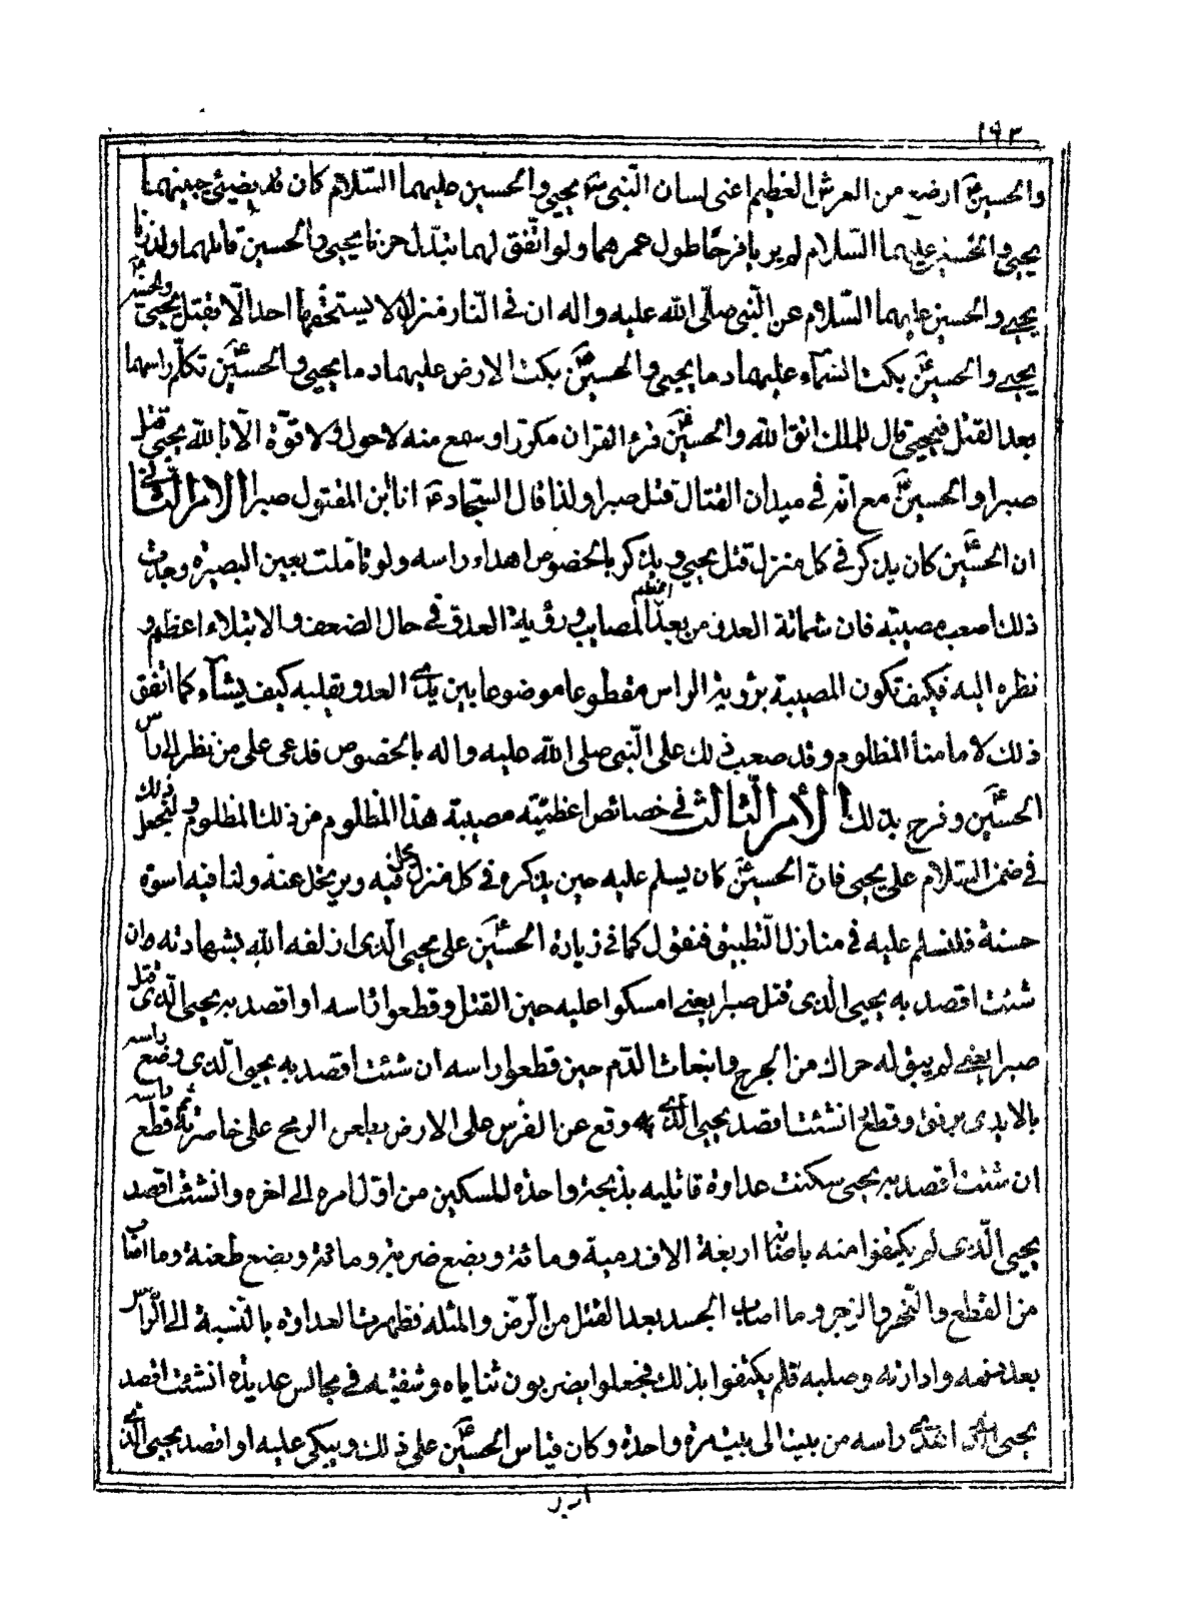 ١٩٢
والحسين ع ارضع من العرش العظيم اعنى لسان النبى ص يحيى والحسين عليهما السّلام كان قد يضيئ جبينهما
يحيى والحسين عليهما السّلام لم يريا فرحًا طول عمرهما ولو اتّفق لهما تبدّل حزنا يحيى والحسين قاتلهما ولد زنا
يحيى والحسين عليهما السّلام عن النّبى صلّى الله عليه واله ان فى النّار منزلة لا يستحقّها احد الّا بقتل يحيى والحسين
يحيى والحسين ع بكت السّمآء عليهما دما يحيى والحسين ع بكت الارض عليهما دما يحيى والحسين ع تكلّم راسهما
بعد القتل فيحيى قال للملك اتق الله والحسين ع قرء القران مكررا وسمع منه لا حول ولا قوّة الّا بالله يحيى قتل
صبرا والحسين ع مع انّه فى ميدان القتال قتل صبرا ولذا قال السّجاد ع انا ابن المقتول صبرا الامر الثّانى
ان الحسين ع كان يذكر فى كل منزل قتل يحيى ويذكر بالخصوص اهداء راسه ولو تامّلت بعين البصيرة وجدت
ذلك اصعب مصيبته فان شماتة العدو من بعد اعظم المصايب ورؤية العدوّ فى حال الضعف والابتلاء اعظم و
نظره اليه فكيف تكون المصيبة برؤية الراس مقطوعا موضوعا بين يدى العدو يقلبه كيف يشآء كما اتفق
ذلك لامامنا المظلوم وقد صعب ذلك على النّبى صلى الله عليه واله بالخصوص فدعى على من نظر الى راس
الحسين ع وفرح بذلك الأمر الثّالث فى خصائص اعظميّة مصيبة هذا المظلوم من ذلك المظلوم ولنجعل ذلك
فى ضمن السّلام على يحيى فانّ الحسين ع كان يسلم عليه حين يذكره فى كل منزل يحل فيه ويرتحل عنه ولنا فيه اسوة
حسنة فلنسلم عليه فى منازل التّطبيق فنقول كما فى زيارة الحسين ع على يحيى الّذى ازلفه الله بشهادته وان
شئت اقصد به يحيى الّذى قتل صبرا يعنى امسكوا عليه حين القتل وقطعوا راسه او اقصد به يحيى الّذى قتل
صبرا يعنى لم يبق له حراك من الجرح وانبعاث الدّم حين قطعوا راسه ان شئت اقصد به يحيى الّذى وضع راسه
بالايدى برفق وقطع انشئت اقصد يحيى الّذى وقع عن الفرس على الارض بطعن الرمح على خاصرته ثم قطع راسه
ان شئت أقصد به يحيى سكنت عداوة قاتليه بذبحة واحدة للمسكين من اوّل امره الى اخره وانشئت اقصد
يحيى الّذى لم يكتفوا منه باصابة اربعة الاف رمية ومائة وبضع ضربة ومائة وبضع طعنة وما اصاب
من القطع والنّحر والزجر وما اصاب الجسد بعد القتل من الرّضّ والمثله فظهرت العداوة بالنّسبة الى الرّاس
بعد رفعه وادارته وصلبه فلم يكتفوا بذلك فجعلوا يضربون ثناياه وشفتيه فى مجالس عديدة انشئت اقصد
يحيى الّذى اهدى راسه من بيت الى بيت مرة واحدة وكان قياس الحسين ع على ذلك ويبكى عليه او اقصد يحيى الّذى